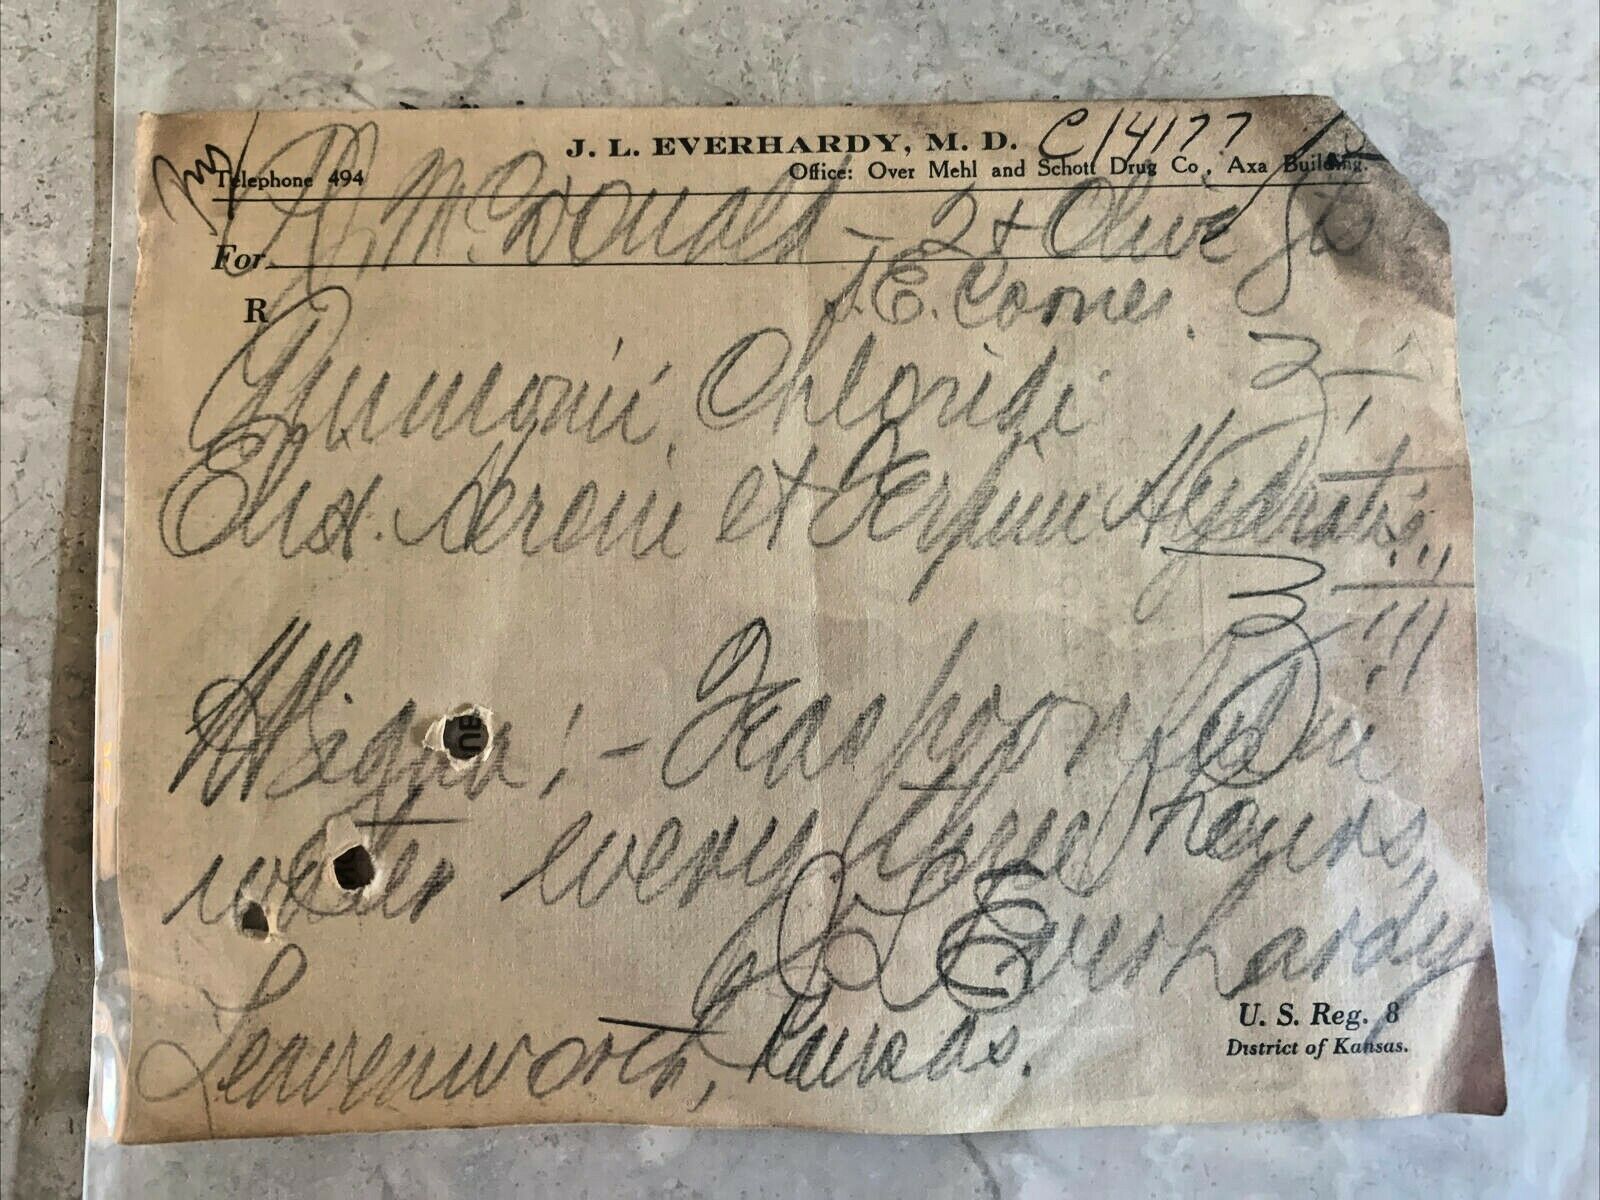 J. L. EVERHARDY, M. D. C14177
Telephone 494 Office: Over Mehl and Schott Drug Co., Axa Building.
For McDonald - 2 + Olive
J.E. Coones.
R
Ammonii Chloridi ʒ-i
Elix. Heroin et Terpini Hydratis
ʒ-iii
Signa:- Teaspoonful in
water every three hours,
J L Everhardy
Leavenworth, Kansas.
U. S. Reg. 8
District of Kansas.
UE